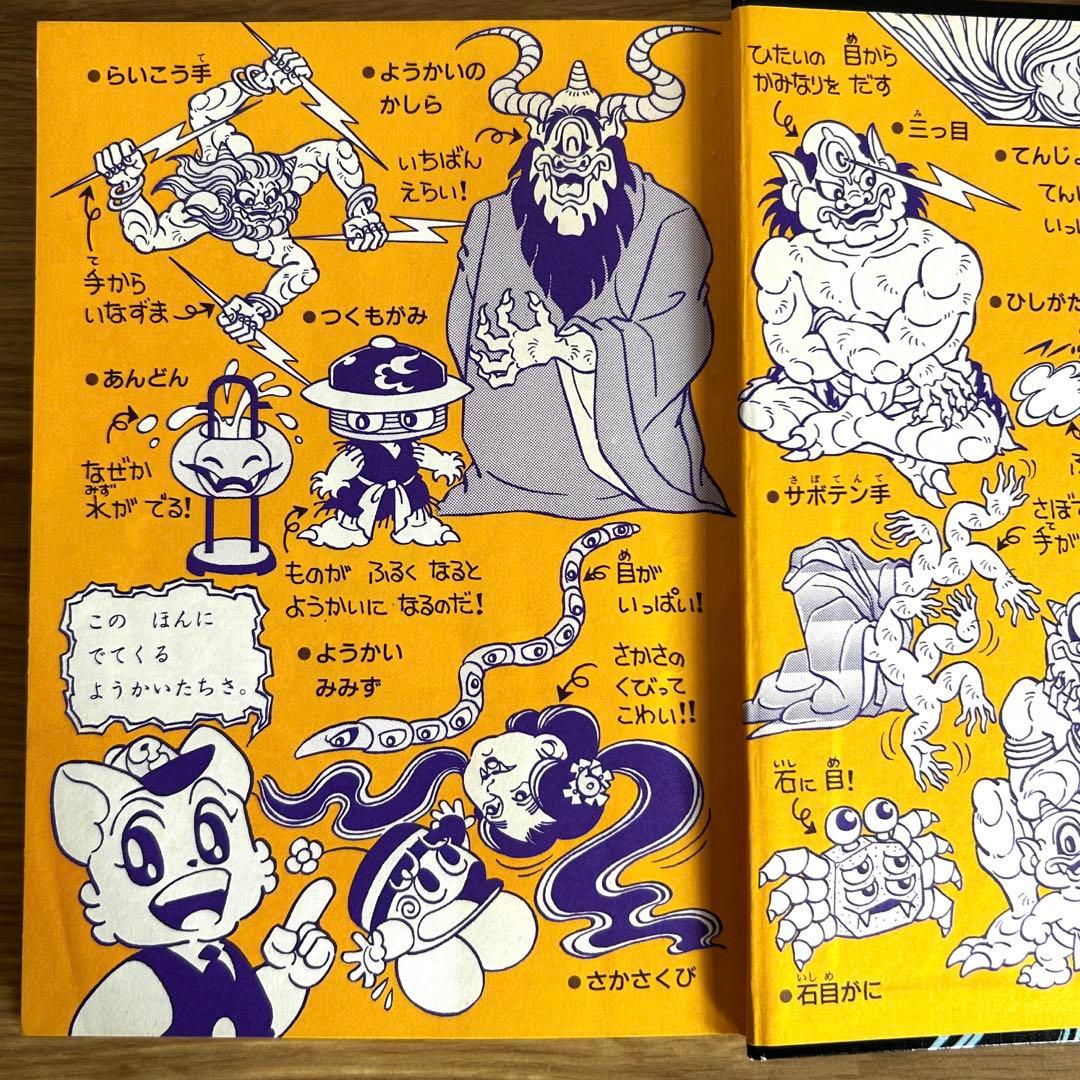 ●らいこう手
て
手から
いなずま
●ようかいの
かしら
いちばん
えらい!
●つくもがみ
ものが ふるく なると
ようかいに なるのだ!
●あんどん
なぜか
みず
水が でる!
この ほんに
でてくる
ようかいたちさ。
●ようかい
みみず
め
目が
いっぱい!
さかさの
くびって
こわい!!
●さかさくび
ひたいの 目から
かみなりを だす
●三っ目
●てんじょ
てん
いっ
●ひしがた
●サボテン手
さぼてんて
さぼて
手が
石に 目!
いし め
●石目がに
いしめ